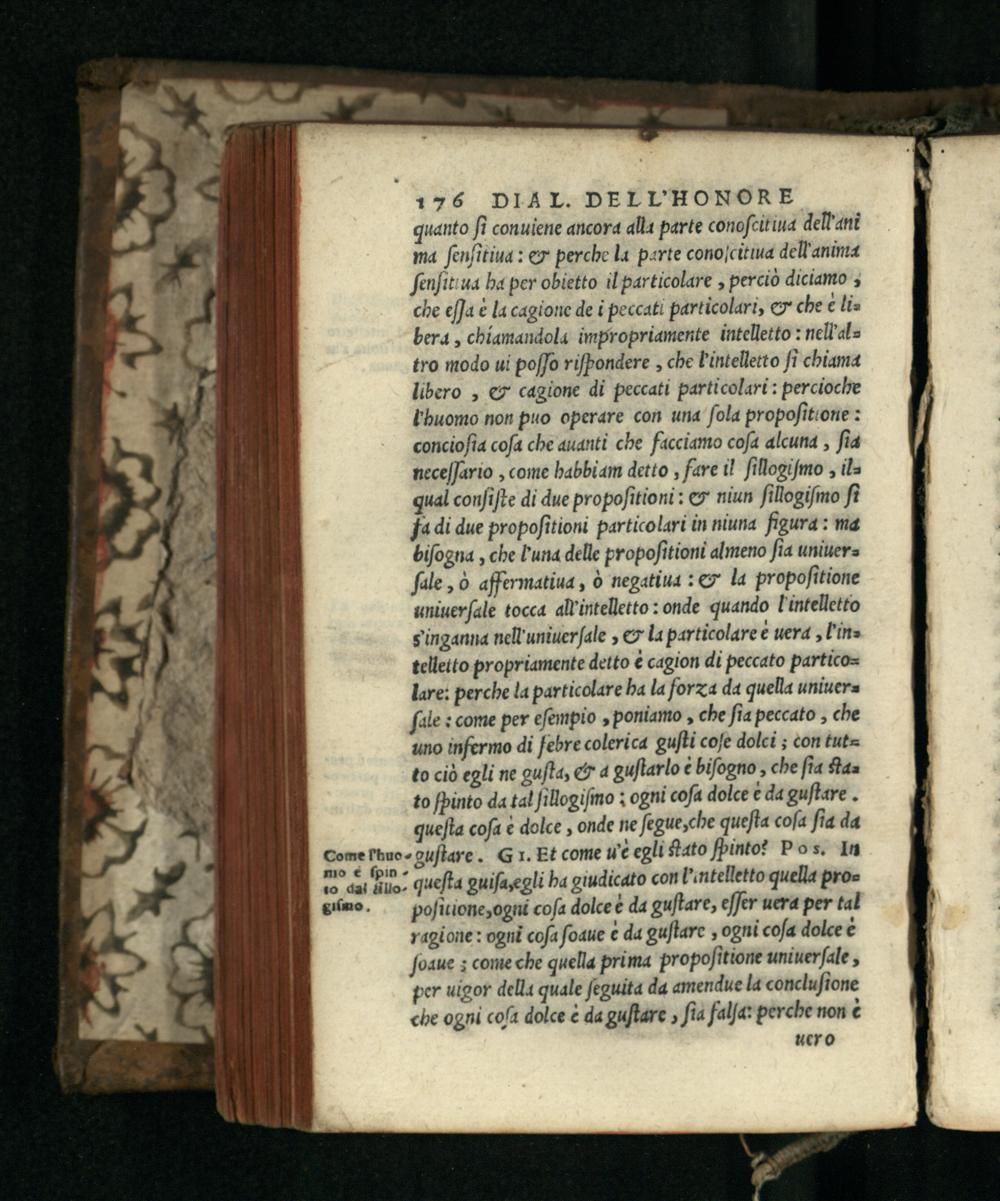 176 DIAL. DELL'HONORE
quanto ſi conuiene ancora alla parte conoſcitiua dell'ani
ma ſenſitiua : & perche la parte conoſcitiua dell'anima
ſenſitiua ha per obietto il particolare , perciò diciamo ,
che eſſa è la cagione de i peccati particolari, & che è li=
bera , chiamandola impropriamente intelletto : nell'al=
tro modo ui poſſo riſpondere , che l'intelletto ſi chiama
libero , & cagione di peccati particolari : percioche
l'huomo non puo operare con una ſola propoſitione :
concioſia coſa che auanti che facciamo coſa alcuna , ſia
neceſſario , come habbiam detto , fare il ſillogiſmo , il=
qual conſiſte di due propoſitioni : & niun ſillogiſmo ſi
fa di due propoſitioni particolari in niuna figura : ma
biſogna , che l'una delle propoſitioni almeno ſia uniuer=
ſale , ò affermatiua, ò negatiua : & la propoſitione
uniuerſale tocca all'intelletto : onde quando l'intelletto
s'inganna nell'uniuerſale , & la particolare è uera , l'in=
telletto propriamente detto è cagion di peccato partico=
lare: perche la particolare ha la forza da quella uniuer=
ſale : come per eſempio , poniamo , che ſia peccato , che
uno infermo di febre colerica guſti coſe dolci ; con tut=
to ciò egli ne guſta, & a guſtarlo è biſogno , che ſia ſta=
to ſpinto da tal ſillogiſmo ; ogni coſa dolce è da guſtare .
queſta coſa è dolce , onde ne ſegue,che queſta coſa ſia da
guſtare . GI. Et come u'è egli ſtato ſpinto? Pos. In
queſta guiſa,egli ha giudicato con l'intelletto quella pro=
poſitione,ogni coſa dolce è da guſtare, eſſer uera per tal
ragione : ogni coſa ſoaue è da guſtare , ogni coſa dolce è
ſoaue ; come che quella prima propoſitione uniuerſale ,
per uigor della quale ſeguita da amendue la concluſione
che ogni coſa dolce è da guſtare , ſia falſa: perche non è
uero
Come l'huo-
mo è ſpin-
to dal ſillo-
giſmo .